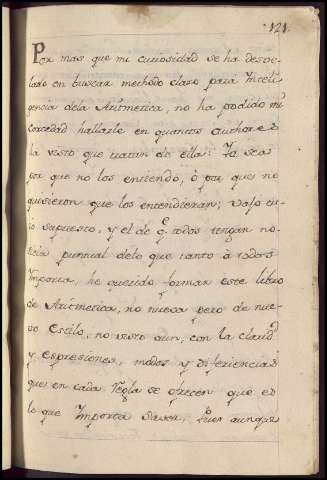 121.
Por mas que mi curiosidad se ha desve-
lado en buscar methodo claro para Inteli-
gencia dela Aritmetica, no ha podido mi
cortedad hallarle en quantos Authores
ha visto que tratan de ella: Ya sea
por que no los entiendo, ò por que no
quisieron que los entendieran; vajo cu-
io supuesto, y el de q̃ todos tengan no-
ticia puntual delo que tanto à todos
Importa, he querido formar este libro
de Aritmetica, no nueva pero de nue-
vo Estilo, no visto aun, con la claridd
y espresiones, modos y diferiencias
que en cada Regla se ofrecen que es
lo que Importa saver, Pues aunque